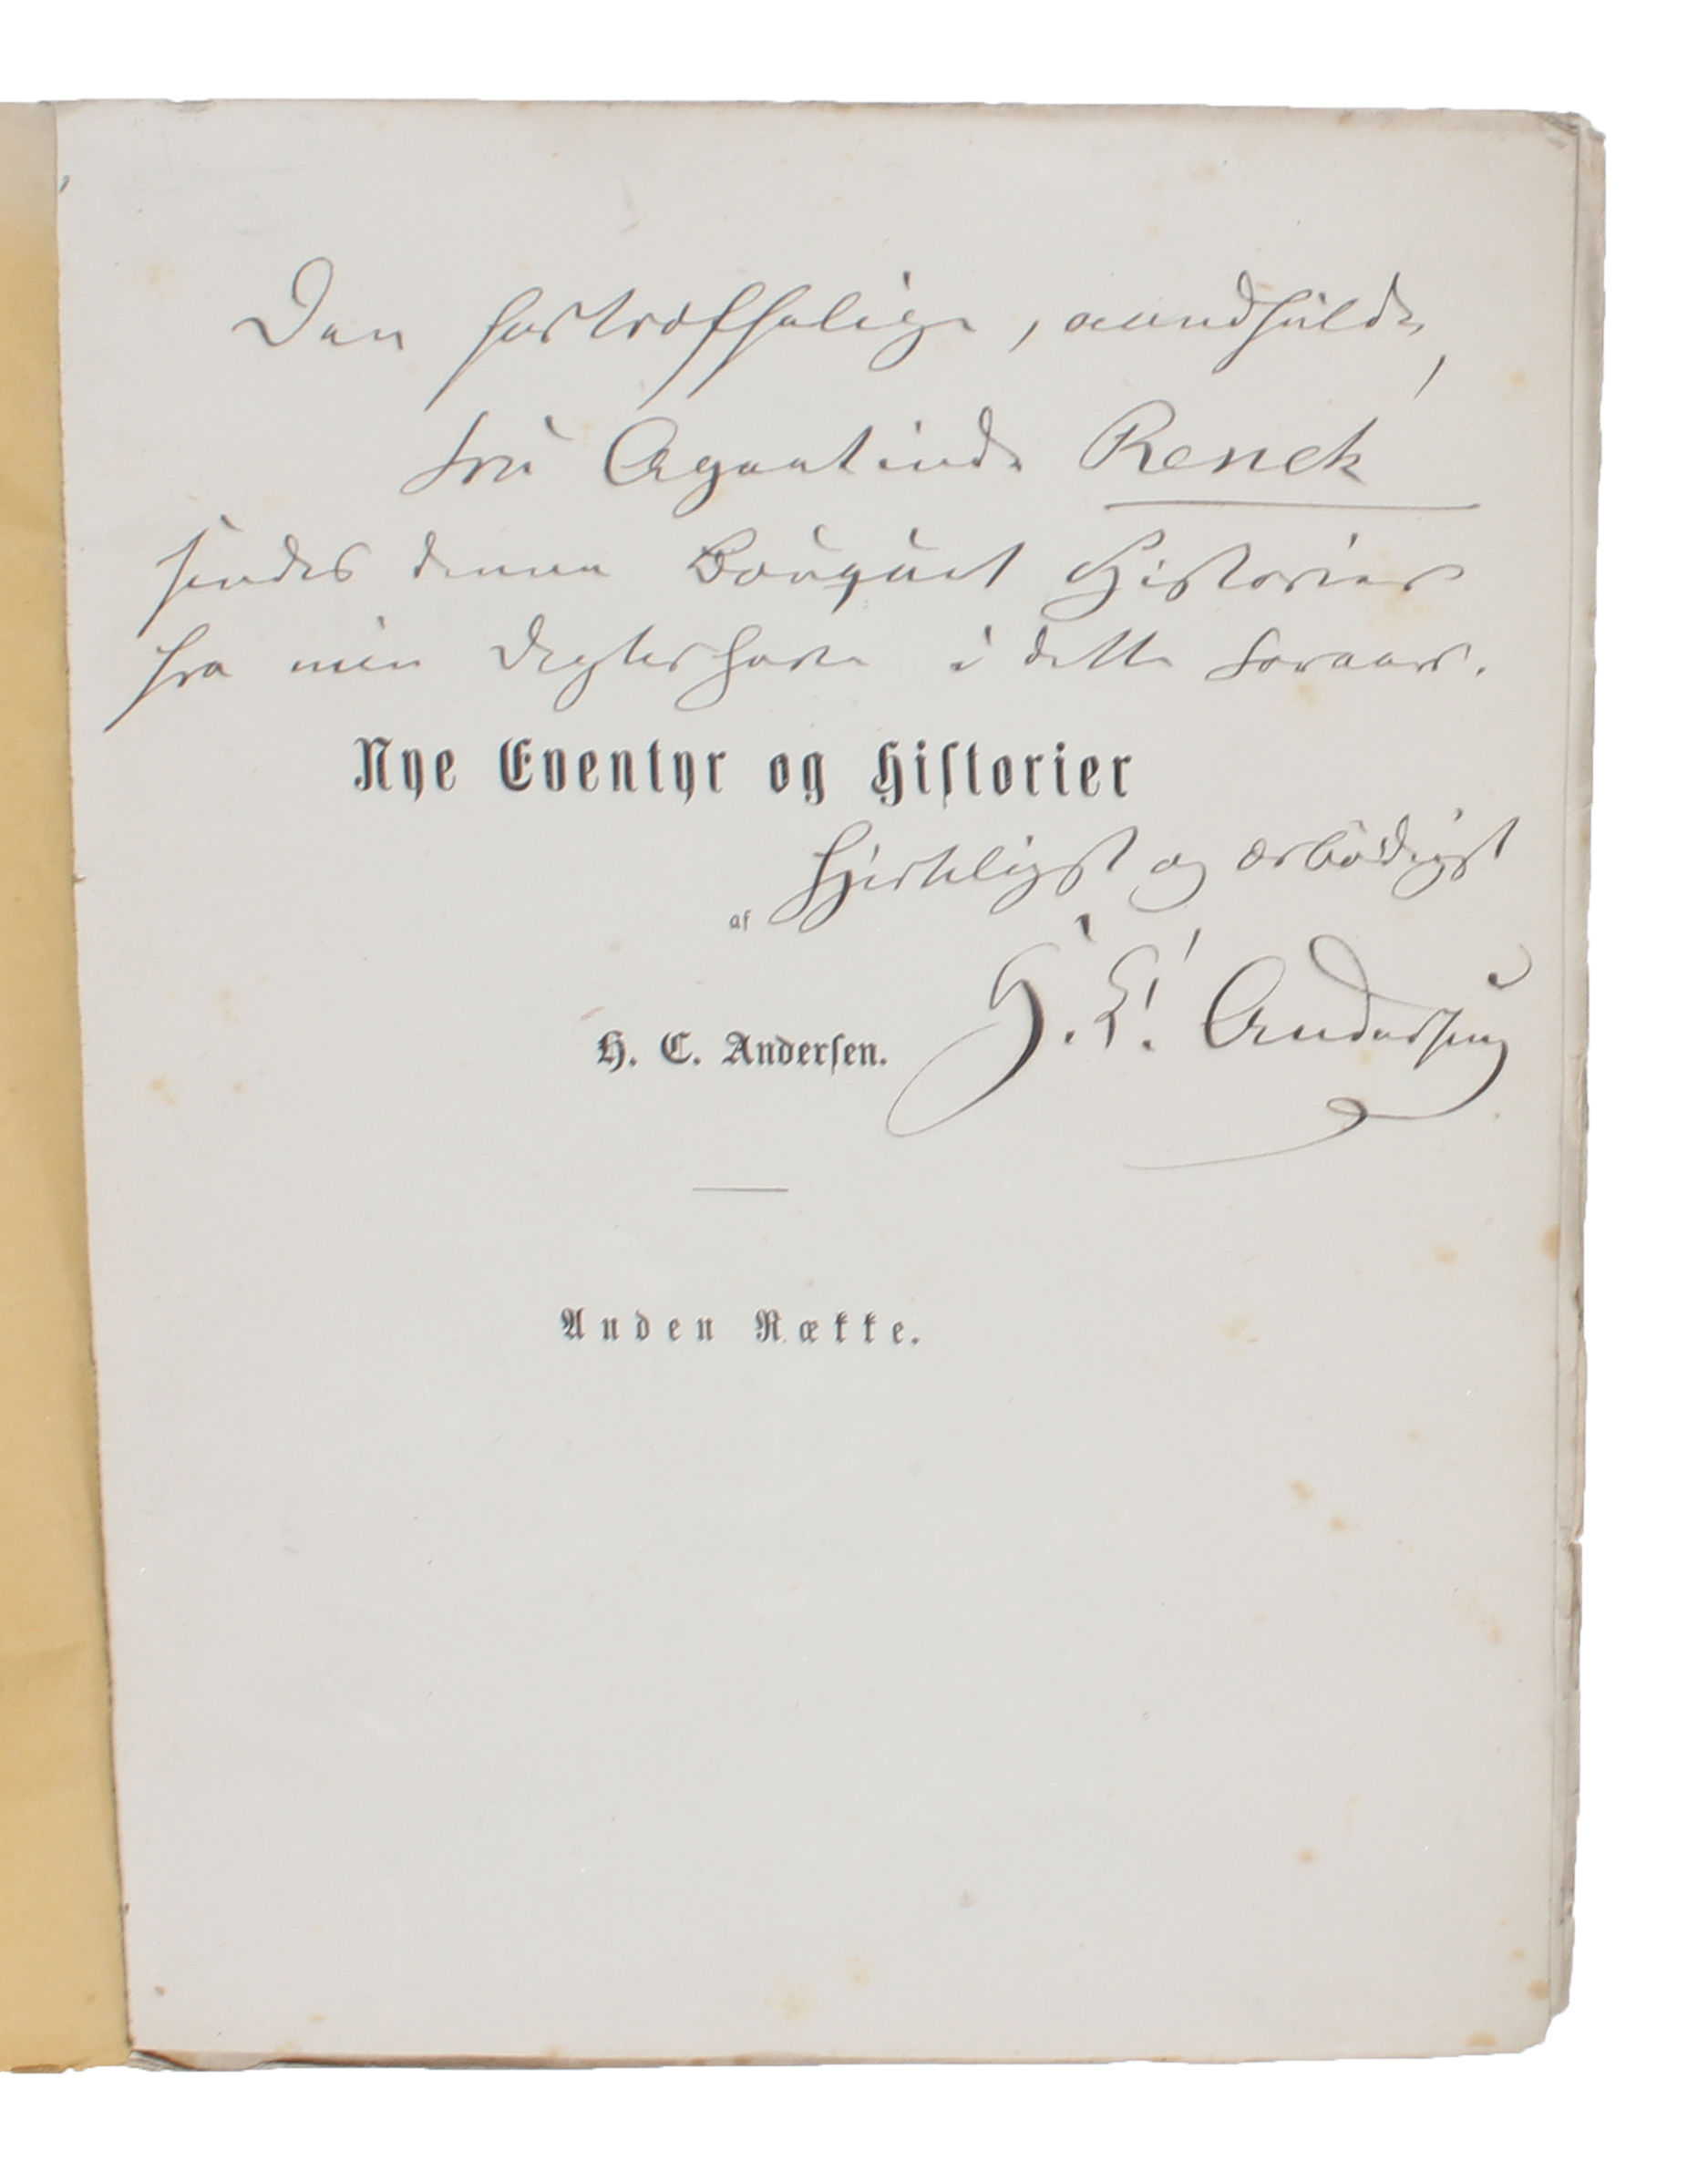 Den fortræffelige, aandfulde,
Fru Agentinde Renck
sendes denne Bouquet Historier
fra min Digterhave i dette Foraar.
Nye Eventyr og Historier
Hjerteligst og ærbødigst
af
H. C. Andersen. H. C. Andersen
Anden Række.